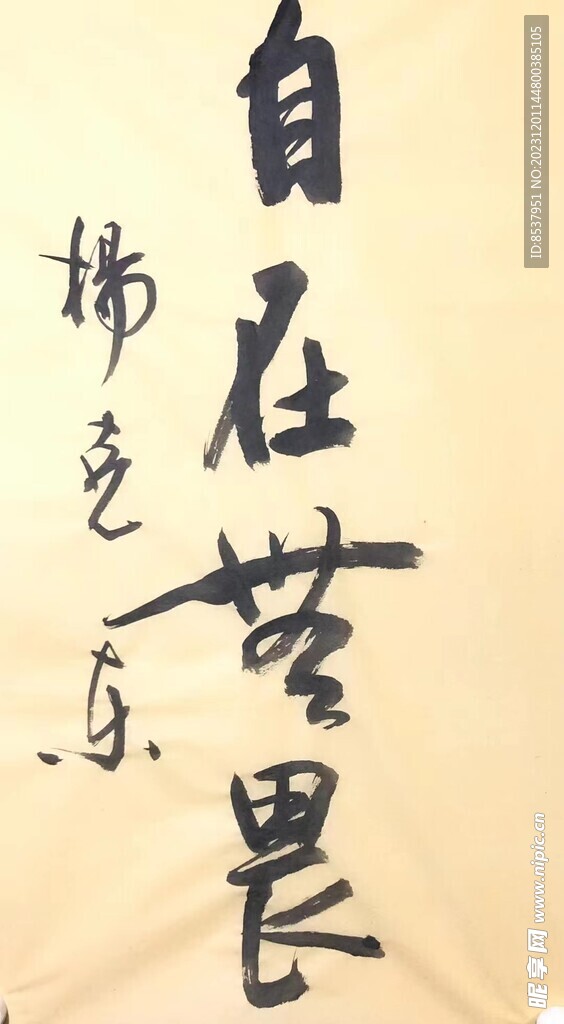 自在無畏
楊克东
ID:8537951 NO:20231201144800385105
昵享网 www.nipic.cn